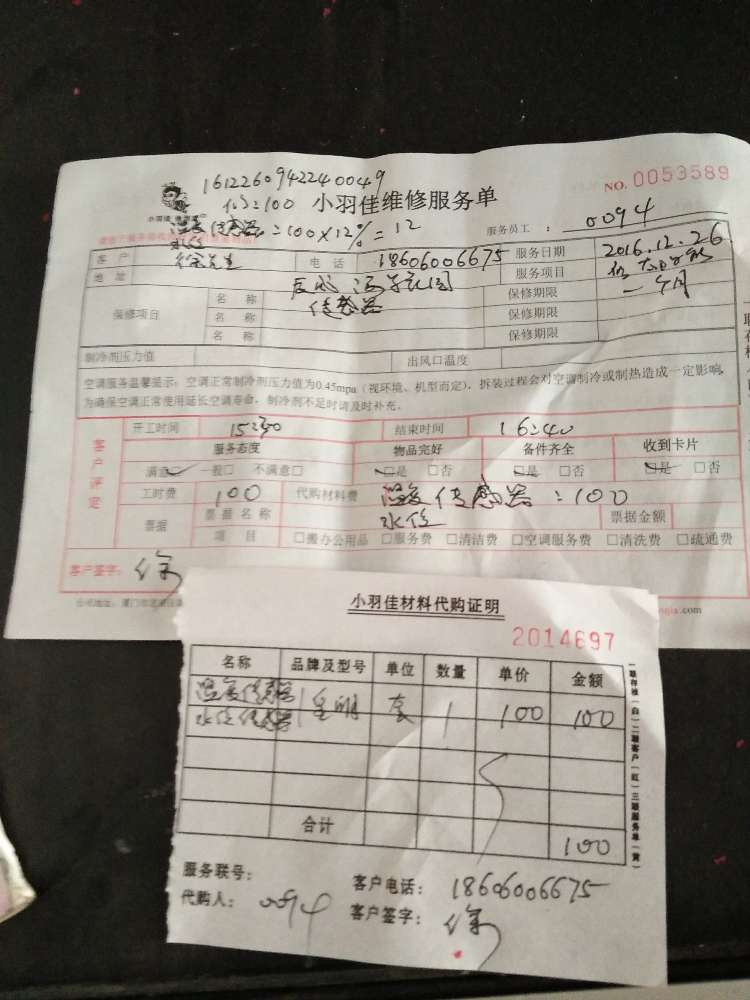 1612260942240049
NO. 0053589
小羽佳维修服务单
温度传感器=100×12%=12
水位
服务员工：0094
客户 徐先生 电话 18606006675 服务日期 2016.12.26
地址 服务项目
保修项目 名称 传感器 保修期限 一个月
名称 保修期限
名称 保修期限
制冷剂压力值 出风口温度
空调服务温馨提示：空调正常制冷剂压力值为0.45mpa（视环境、机型而定），拆装过程会对空调制冷或制热造成一定影响，
为确保空调正常使用延长空调寿命，制冷剂不足时请及时补充。
客户评定
开工时间 15:30 结束时间 16:40
服务态度 物品完好 备件齐全 收到卡片
满意☑ 一般□ 不满意□ ☑是 □否 ☑是 □否 ☑是 □否
工时费 100 代购材料费 温度传感器：100
水位
票据 票据名称 票据金额
项目 □搬办公用品 □服务费 □清洁费 □空调服务费 □清洗费 □疏通费
客户签字：徐
小羽佳材料代购证明
2014697
名称 品牌及型号 单位 数量 单价 金额
温度传感器
水位传感器 皇明 套 1 100 100
合计 100
服务联号：
客户电话：18606006675
代购人：0094
客户签字：徐
一联存根（白）二联客户（红）三联服务单（黄）